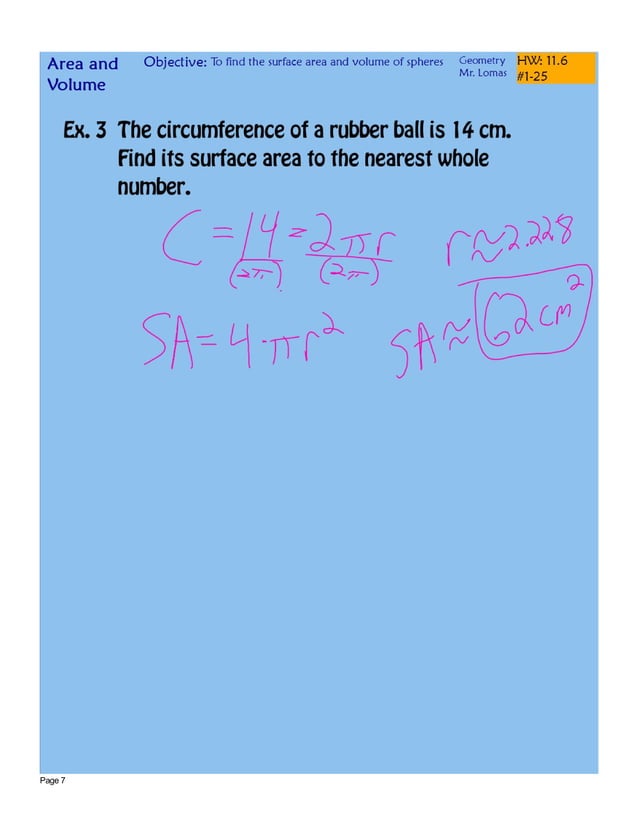 Area and Volume
Objective: To find the surface area and volume of spheres
Geometry
Mr. Lomas
HW: 11.6
#1-25
Ex. 3 The circumference of a rubber ball is 14 cm.
Find its surface area to the nearest whole
number.
C = 14/(2π) = 2πr/(2π) r ≈ 2.228
SA = 4·πr² SA ≈ 62 cm²
Page 7